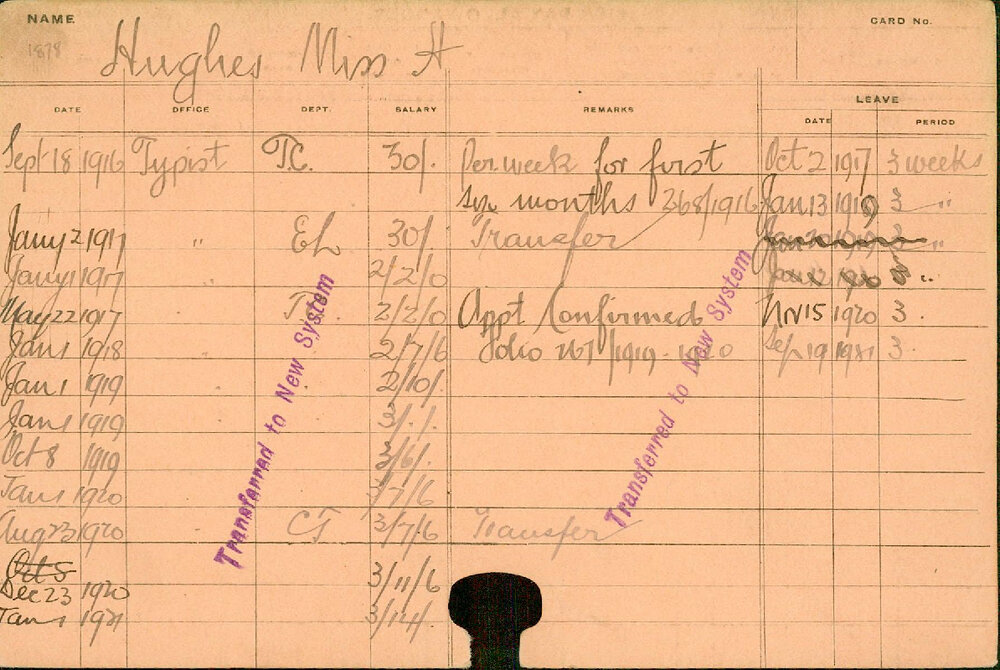 NAME
CARD No.
1878
Hughes Miss H
DATE OFFICE DEPT. SALARY REMARKS LEAVE
DATE PERIOD
Sept 18 1916 Typist T.C. 30/. Per week for first Oct 2 1917 3 weeks
six months 268/1916 Jan 13 1919 3 "
Jany 2 1917 " EL 30/ Transfer 3 "
Jany 1 1917 2/2/0
May 22 1917 2/2/0 Appt Confirmed Nov 15 1920 3.
Jan 1 1918 " 2/7/6 Folio 1919-1920 Sep 19 1921 3.
Jan 1 1919 2/10/.
Jan 1 1919 3/./.
Oct 8 1919 3/6/.
Jan 1 1920 3/7/6
Aug 23 1920 CT 3/7/6 Transfer
Oct 5
Dec 23 1920 3/11/6
Jan 1 1921 3/14/.
Transferred to New System
Transferred to New System